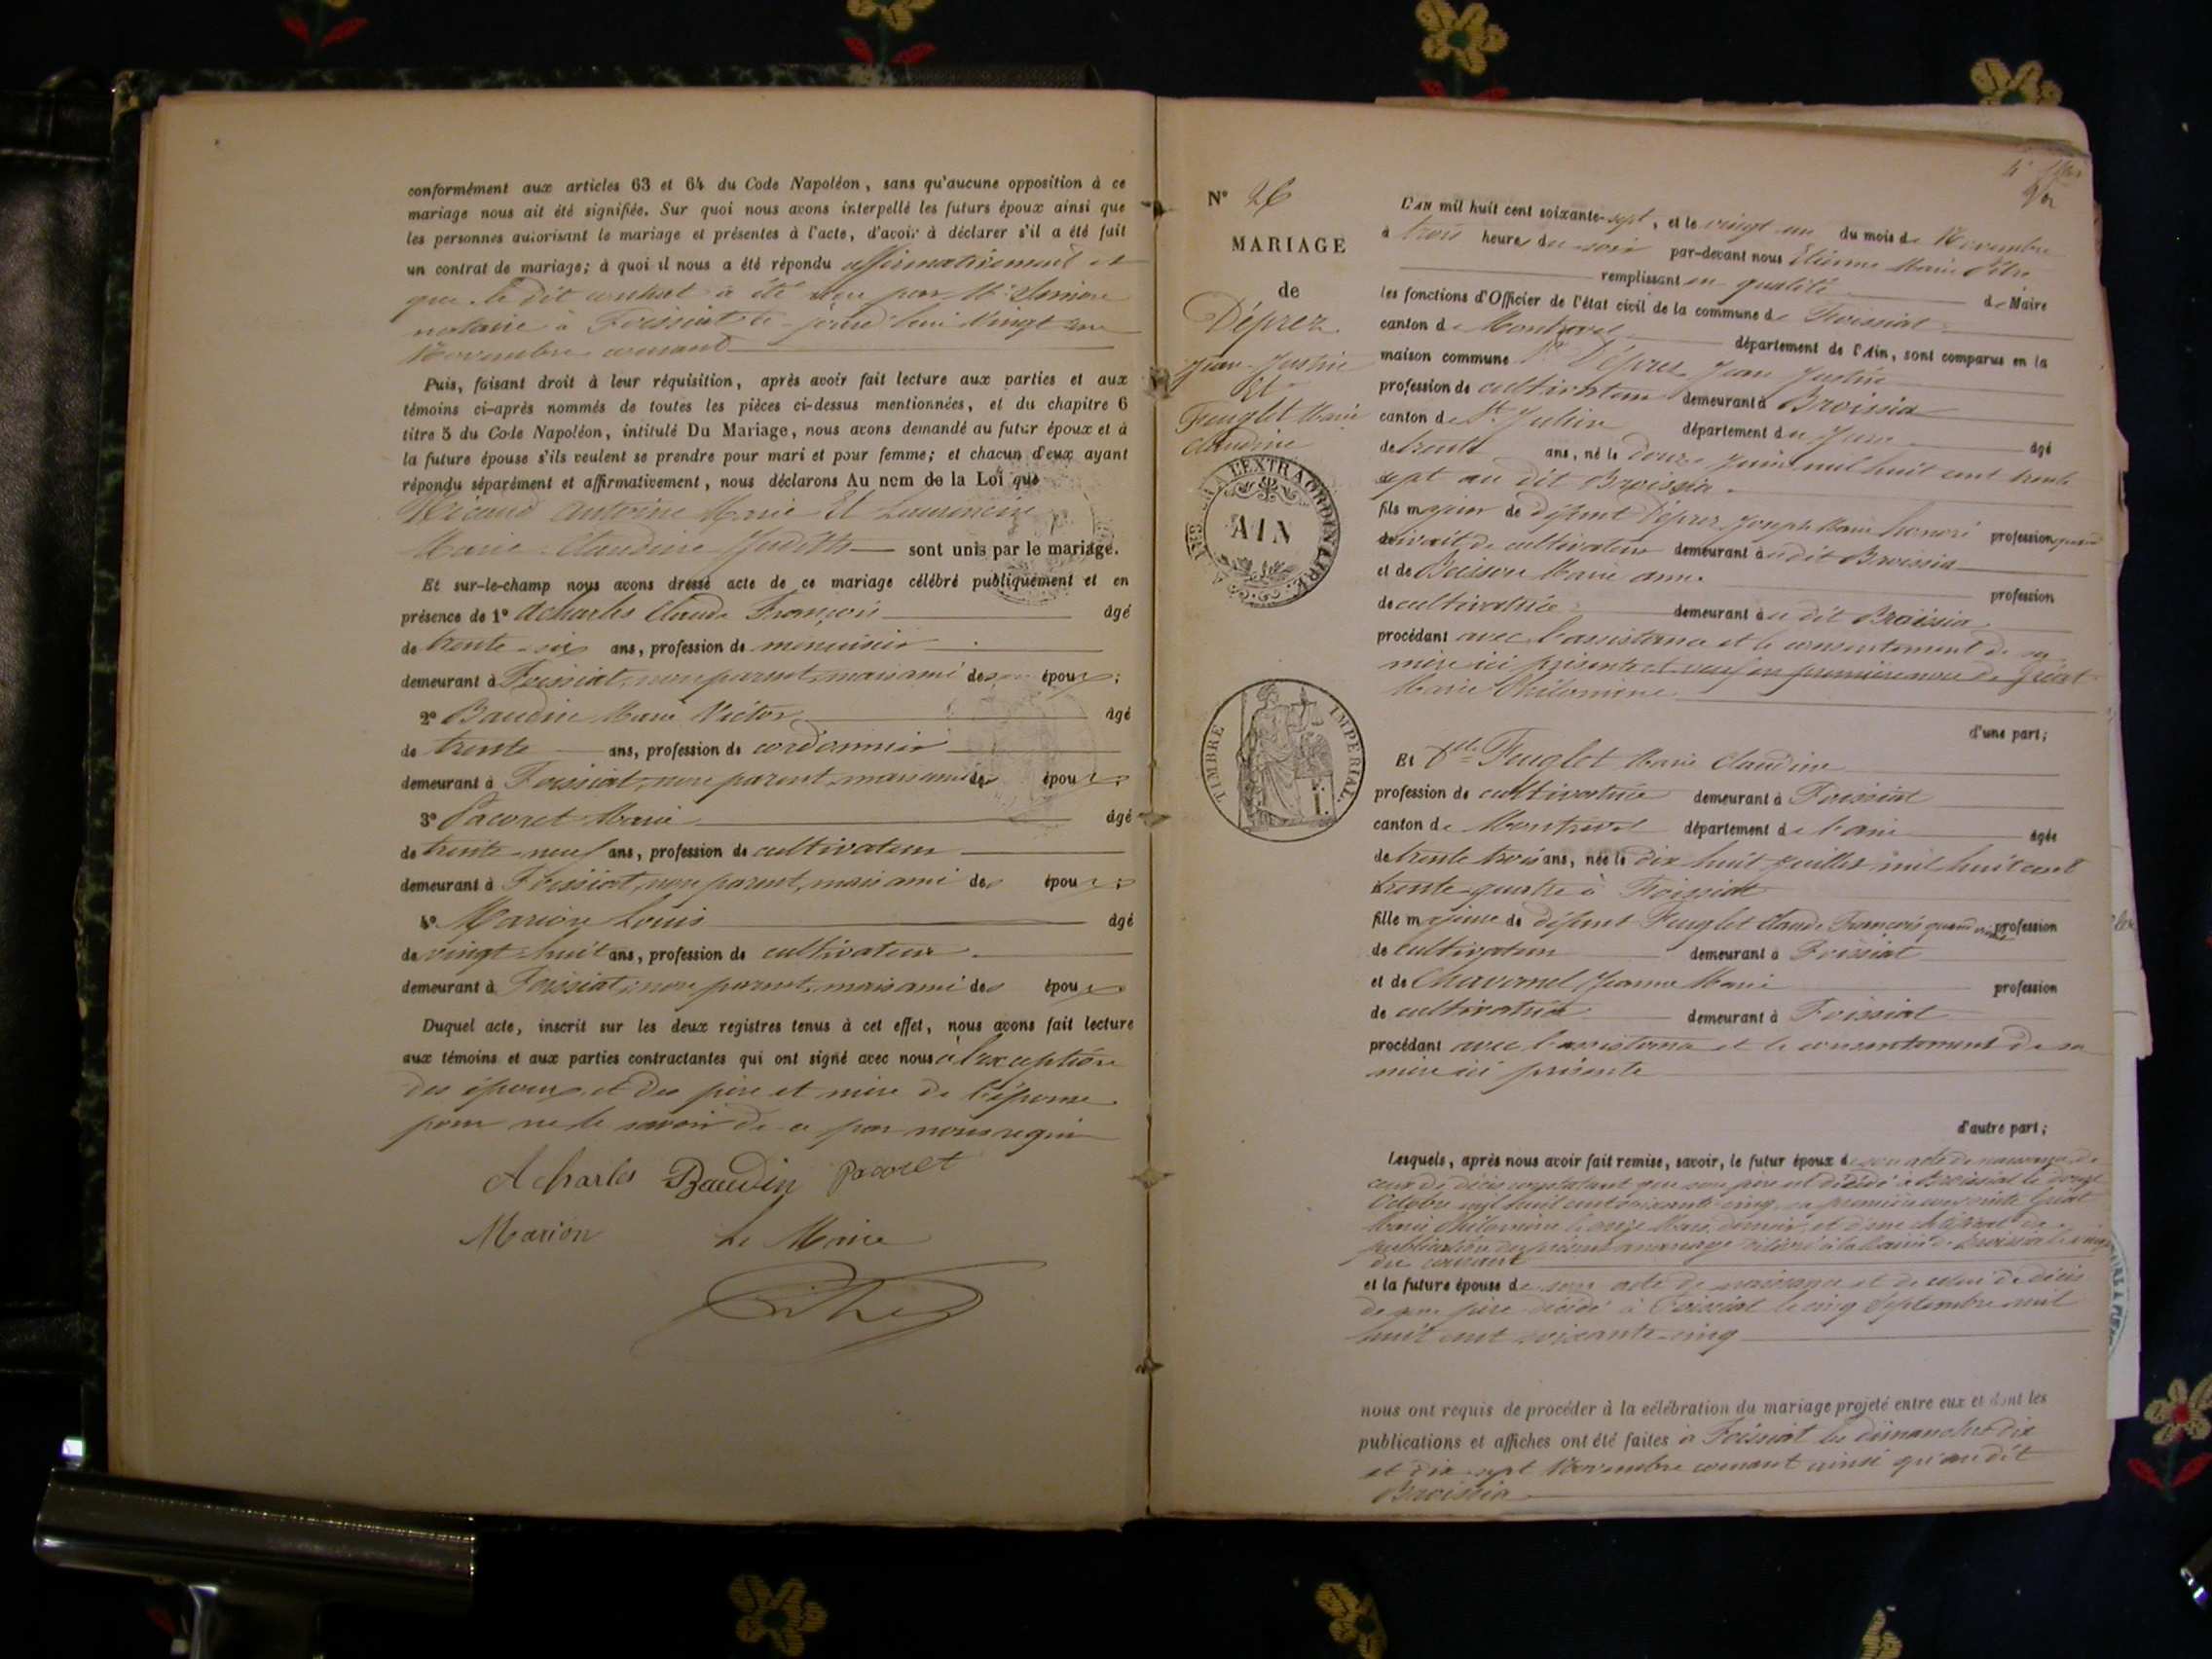 conformément aux articles 63 et 64 du Code Napoléon, sans qu'aucune opposition à ce
mariage nous ait été signifiée. Sur quoi nous avons interpellé les futurs époux ainsi que
les personnes autorisant le mariage et présentes à l'acte, d'avoir à déclarer s'il a été fait
un contrat de mariage; à quoi il nous a été répondu affirmativement et
que le dit contrat a été reçu par Me
notaire à Foissiat le jourd'hui vingt un
Novembre courant
Puis, faisant droit à leur réquisition, après avoir fait lecture aux parties et aux
témoins ci-après nommés de toutes les pièces ci-dessus mentionnées, et du chapitre 6
titre 5 du Code Napoléon, intitulé Du Mariage, nous avons demandé au futur époux et à
la future épouse s'ils veulent se prendre pour mari et pour femme; et chacun d'eux ayant
répondu séparément et affirmativement, nous déclarons Au nom de la Loi que
Micaud Antoine Marie Et
Marie Claudine Judith sont unis par le mariage.
Et sur-le-champ nous avons dressé acte de ce mariage célébré publiquement et en
présence de 1° Acharles Claude François âgé
de trente six ans, profession de menuisier
demeurant à Foissiat, non parent, mais ami des époux;
2° Baudin Marie Victor âgé
de trente ans, profession de cordonnier
demeurant à Foissiat, non parent, mais ami des époux;
3° Pacoret Marie âgé
de trente neuf ans, profession de cultivateur
demeurant à Foissiat, non parent, mais ami des époux;
4° Marion Louis âgé
de vingt huit ans, profession de cultivateur
demeurant à Foissiat, non parent, mais ami des époux
Duquel acte, inscrit sur les deux registres tenus à cet effet, nous avons fait lecture
aux témoins et aux parties contractantes qui ont signé avec nous à l'exception
des époux et des père et mère de l'épouse
pour ne le savoir de ce par nous requis
Acharles Baudin Pacoret
Marion Le Maire
N° 26
MARIAGE
de
Déprez
Jean Justin
Et
Feuglet Marie
Claudine
A L'EXTRAORDINAIRE
AIN
TIMBRE IMPERIAL
L'AN mil huit cent soixante-sept, et le vingt un du mois de Novembre
à trois heures du soir par-devant nous Etienne Marie
remplissant en qualité de Maire
les fonctions d'Officier de l'état civil de la commune de Foissiat
canton de Montrevel département de l'Ain, sont comparus en la
maison commune Sr Déprez Jean Justin
profession de cultivateur demeurant à Broissia
canton de St Julien département du Jura âgé
de trente ans, né le douze Juin mil huit cent trente
sept au dit Broissia
fils majeur de défunt Déprez Joseph Marie honoré profession quand
vivait de cultivateur demeurant audit Broissia
et de Buisson Marie Anne profession
de cultivatrice demeurant au dit Broissia
procédant avec l'assistance et le consentement de sa
mère ici présente et veuf en première noce de
Marie Philomine
d'une part;
Et Dlle Feuglet Marie Claudine
profession de cultivatrice demeurant à Foissiat
canton de Montrevel département de l'ain âgée
de trente trois ans, née le dix huit Juillet mil huit cent
trente quatre à Foissiat
fille majeure de défunt Feuglet Claude François quand vivait profession
de cultivateur demeurant à Foissiat
et de Chavanel Jeanne Marie profession
de cultivatrice demeurant à Foissiat
procédant avec l'assistance et le consentement de sa
mère ici présente
d'autre part;
Lesquels, après nous avoir fait remise, savoir, le futur époux de son acte de naissance, de
ceux de décès constatant que son père est décédé à Broissia le
Octobre mil huit cent soixante cinq, sa première
Marie Philomine le onze Mars dernier, et d'un certificat de
publication du présent mariage délivré à la Mairie de Broissia le
du courant
et la future épouse de son acte de naissance et de celui de décès
de son père décédé à Foissiat le cinq Septembre mil
huit cent soixante cinq
nous ont requis de procéder à la célébration du mariage projeté entre eux et dont les
publications et affiches ont été faites à Foissiat les dimanches dix
et dix sept Novembre courant ainsi qu'au dit
Broissia